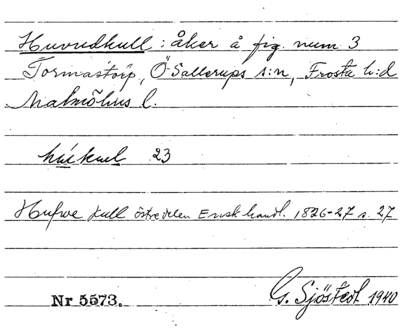 Huvudkull : åker å fig. num 3
Tormastorp, Ö Sallerups s:n, Frosta h:d
Malmöhus l.
23
Hufve kull östre delen Ensk handl. 1826-27 s. 27
Nr 5573. G. Sjöstedt 1940